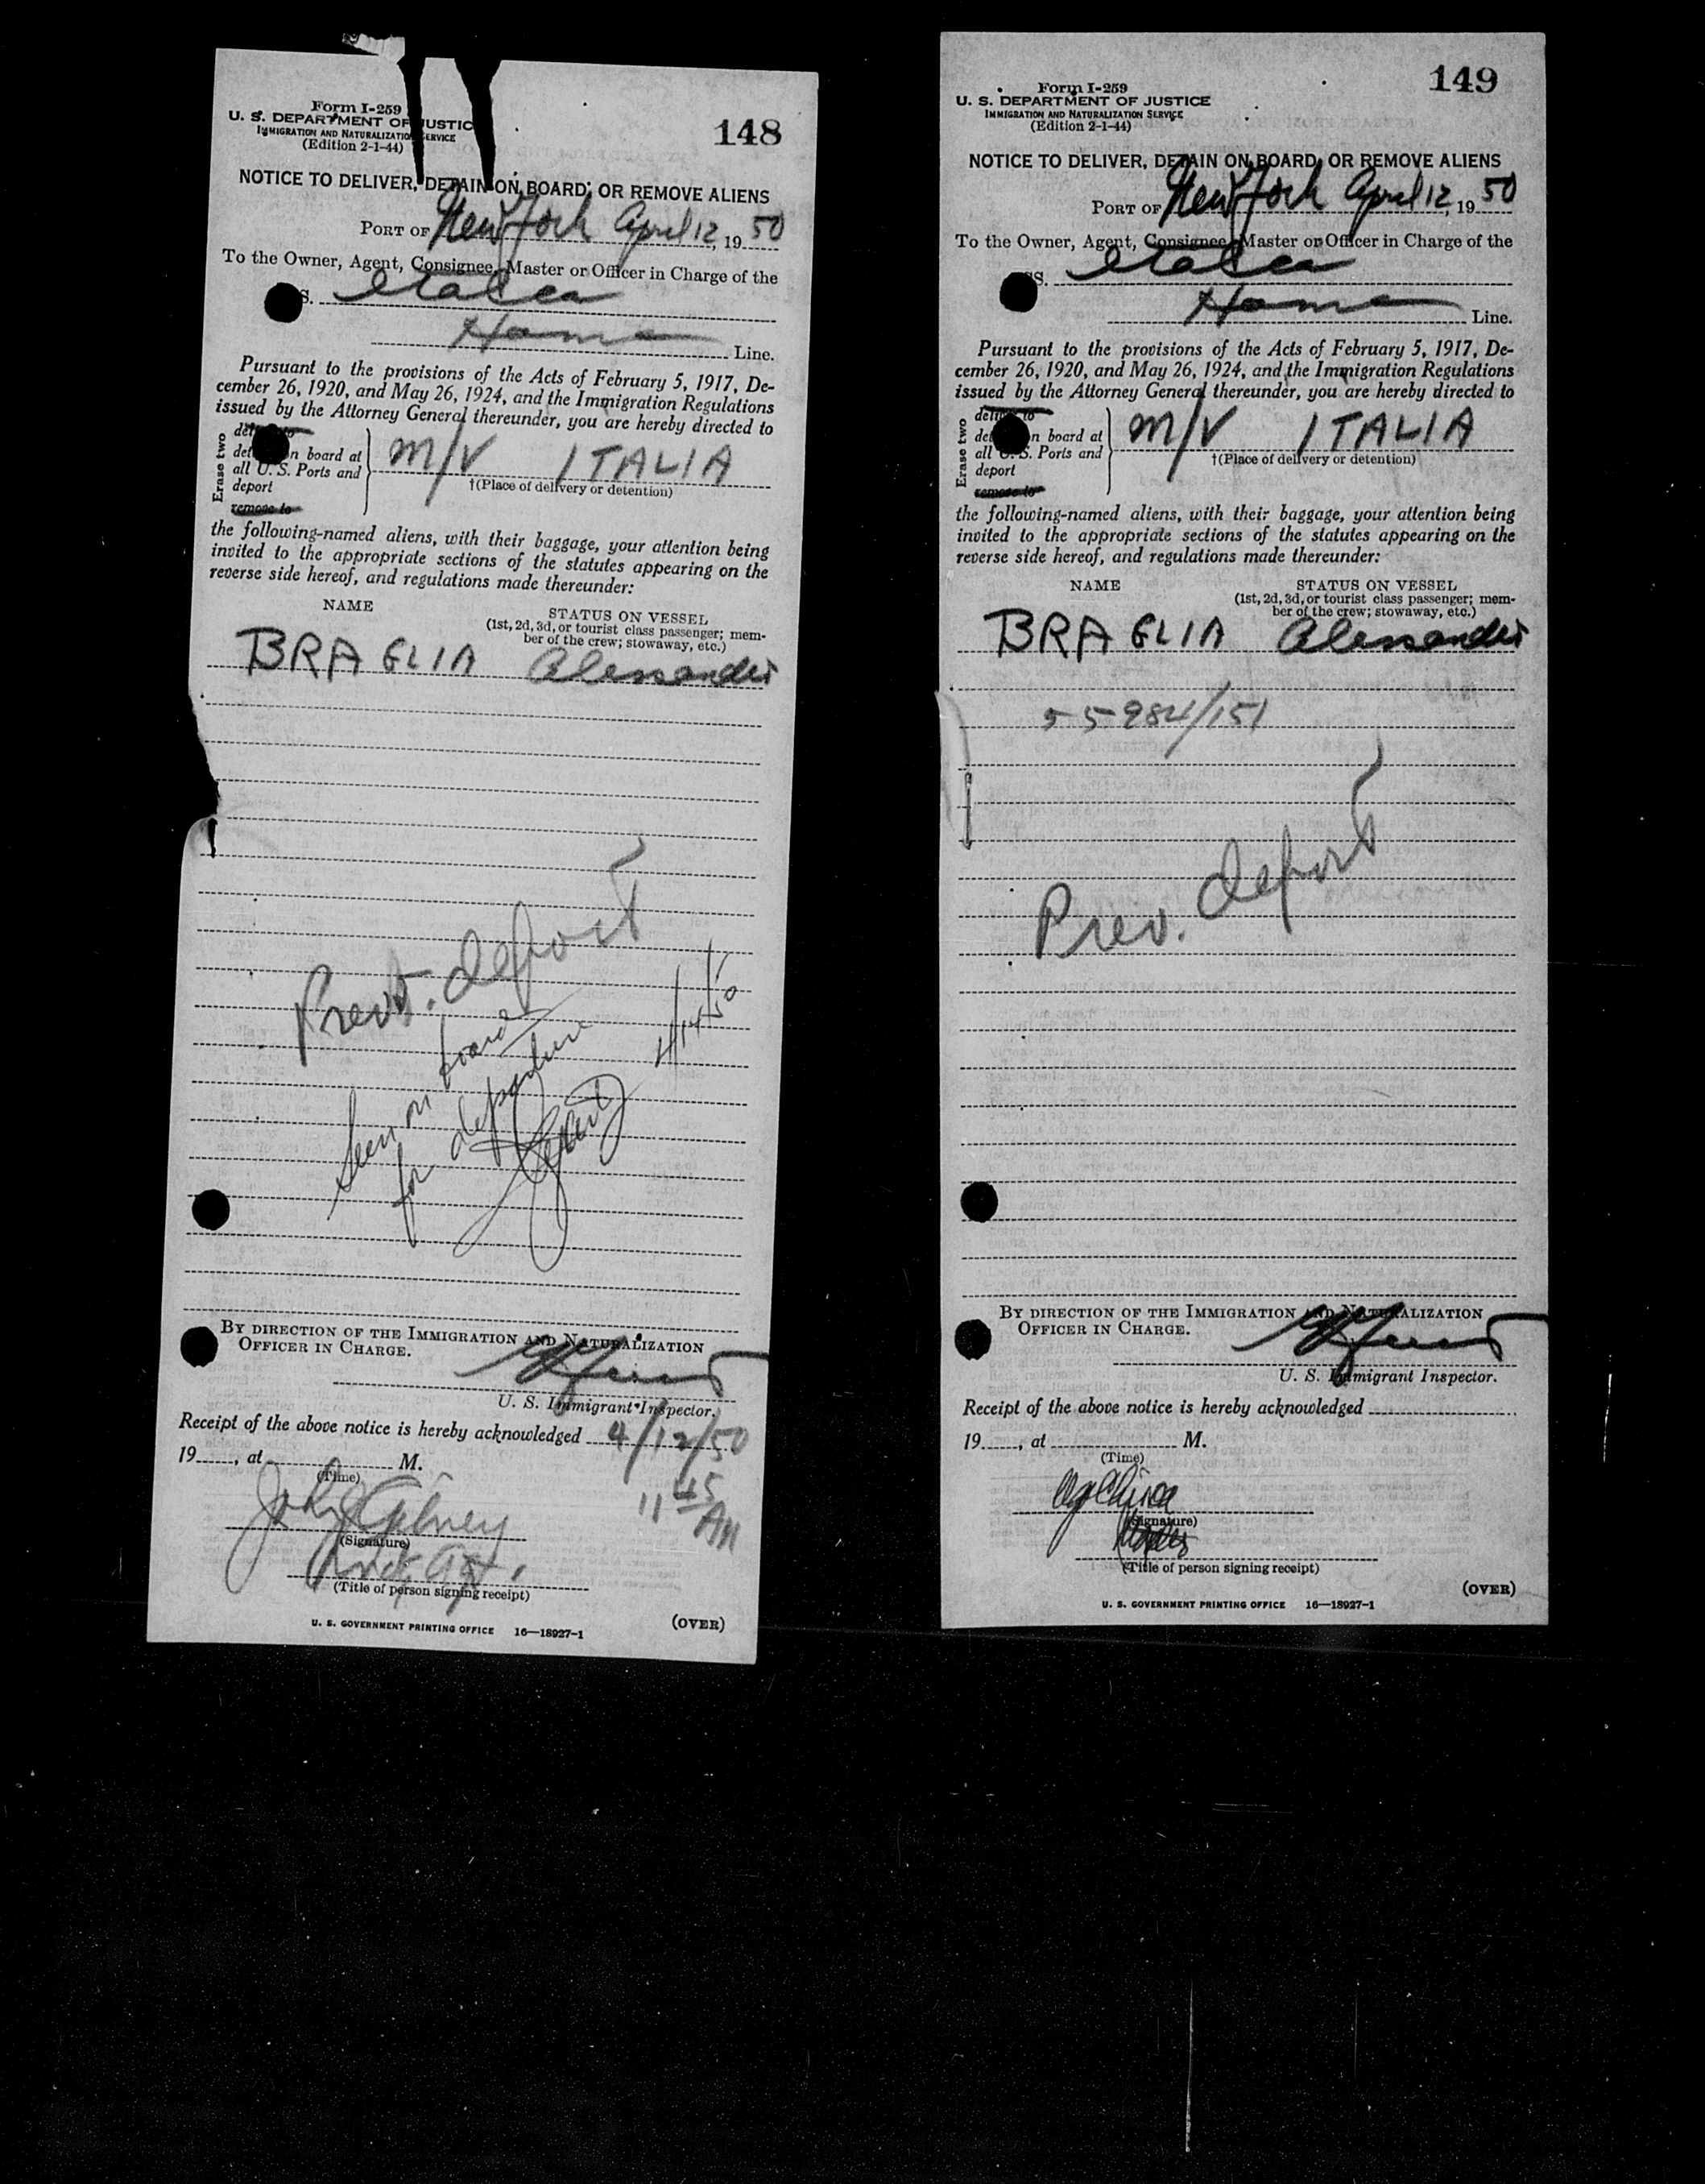 148
Form I-259
U. S. DEPARTMENT OF JUSTIC
IMMIGRATION AND NATURALIZATIO SERVICE
(Edition 2-1-44)
NOTICE TO DELIVER, DETAIN ON BOARD, OR REMOVE ALIENS
PORT OF New York April 12, 1950
To the Owner, Agent, Consignee, Master or Officer in Charge of the
S. Italia
Home Line.
Pursuant to the provisions of the Acts of February 5, 1917, De-
cember 26, 1920, and May 26, 1924, and the Immigration Regulations
issued by the Attorney General thereunder, you are hereby directed to
Erase two
n board at
all U. S. Ports and
deport
remove to
M/V ITALIA
†(Place of delivery or detention)
the following-named aliens, with their baggage, your attention being
invited to the appropriate sections of the statutes appearing on the
reverse side hereof, and regulations made thereunder:
NAME
STATUS ON VESSEL
(1st, 2d, 3d, or tourist class passenger; mem-
ber of the crew; stowaway, etc.)
BRAGLIA Alessandro
Prev. deport
Seen on board
for departure
4/14/50
BY DIRECTION OF THE IMMIGRATION AND NATURALIZATION
OFFICER IN CHARGE.
U. S. Immigrant Inspector.
Receipt of the above notice is hereby acknowledged 4/12/50
19, at M.
(Time)
11 45 AM
John
(Signature)
Agt.
(Title of person signing receipt)
U. S. GOVERNMENT PRINTING OFFICE 16—18927-1
(OVER)
149
Form I-259
U. S. DEPARTMENT OF JUSTICE
IMMIGRATION AND NATURALIZATION SERVICE
(Edition 2-1-44)
NOTICE TO DELIVER, DETAIN ON BOARD, OR REMOVE ALIENS
PORT OF New York April 12, 1950
To the Owner, Agent, Consignee, Master or Officer in Charge of the
SS. Italia
Home Line.
Pursuant to the provisions of the Acts of February 5, 1917, De-
cember 26, 1920, and May 26, 1924, and the Immigration Regulations
issued by the Attorney General thereunder, you are hereby directed to
Erase two
n board at
all U. S. Ports and
deport
remove to
M/V ITALIA
†(Place of delivery or detention)
the following-named aliens, with their baggage, your attention being
invited to the appropriate sections of the statutes appearing on the
reverse side hereof, and regulations made thereunder:
NAME
STATUS ON VESSEL
(1st, 2d, 3d, or tourist class passenger; mem-
ber of the crew; stowaway, etc.)
BRAGLIA Alessandro
55984/151
Prev. deport
BY DIRECTION OF THE IMMIGRATION AND NATURALIZATION
OFFICER IN CHARGE.
U. S. Immigrant Inspector.
Receipt of the above notice is hereby acknowledged
19, at M.
(Time)
(Signature)
(Title of person signing receipt)
(OVER)
U. S. GOVERNMENT PRINTING OFFICE 16—18927-1